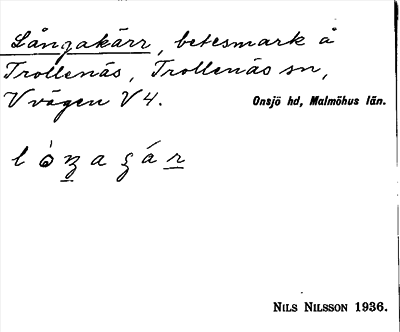 Långakärr, betesmark å
Trollenäs, Trollenäs sn,
V vägen V 4. Onsjö hd, Malmöhus län.
NILS NILSSON 1936.